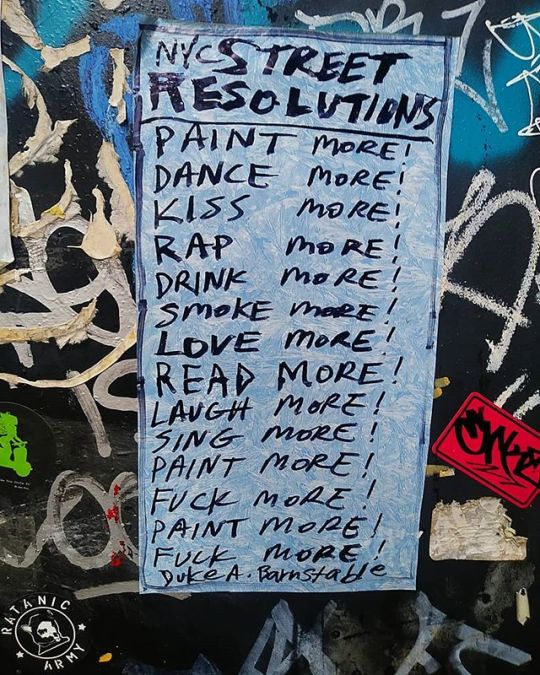 NYC STREET
RESOLUTIONS
PAINT MORE!
DANCE MORE!
KISS MORE!
RAP MORE!
DRINK MORE!
SMOKE MORE!
LOVE MORE!
READ MORE!
LAUGH MORE!
SING MORE!
PAINT MORE!
FUCK MORE!
PAINT MORE!
FUCK MORE!
Duke A. Barnstable
RATANIC
ARMY